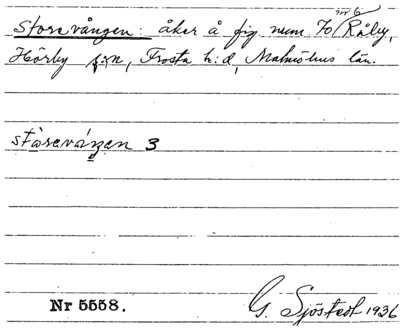 nr 6
Storevången: åker å fig num. 70 Råby,
Hörby s:n, Frosta h:d, Malmöhus län.
ståreváŋen 3
Nr 5558.
G. Sjöstedt 1936